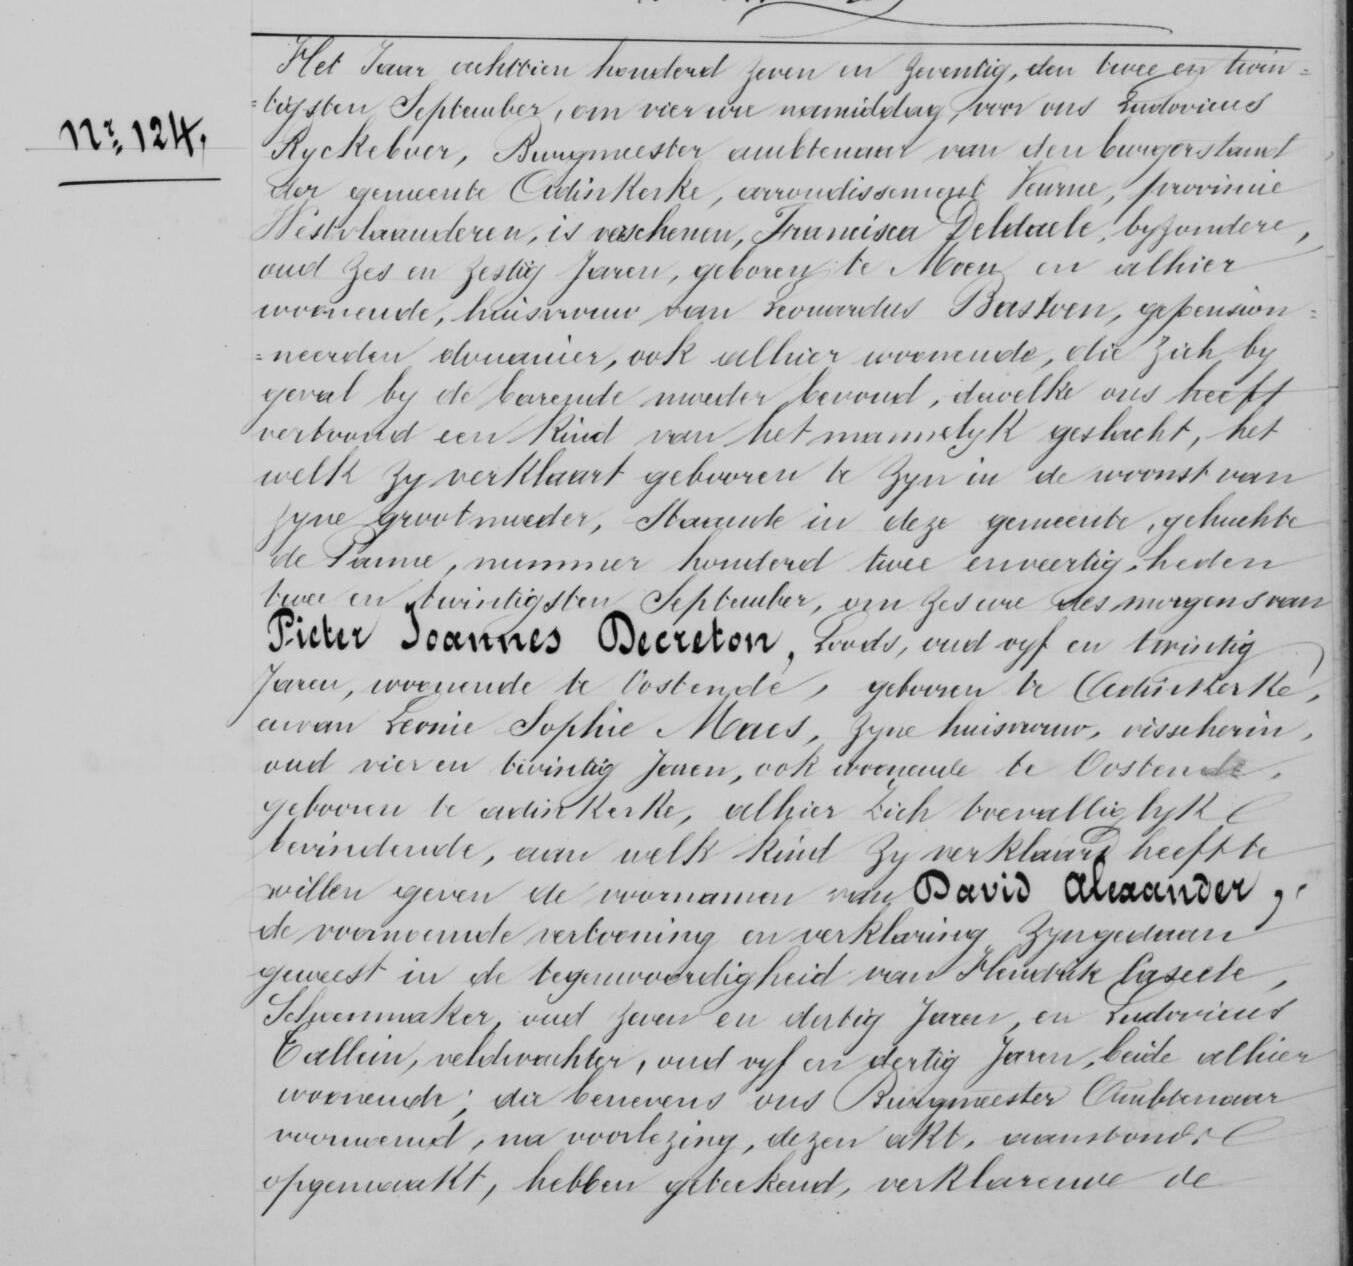 Nr. 124.
Het Jaar achttien honderd zeven en zeventig, den twee en twin=
=tigsten September, om vier ure namiddag, voor ons Ludovicus
Ryckeboer, Burgmeester ambtenaar van den burgerstand
der gemeente Adinkerke, arrondissement Veurne, provincie
Westvlaanderen, is verschenen, Francisca Deldaele, byzondere,
oud zes en zestig Jaren, geboren te Moen en alhier
woonende, huisvrouw van Leonardus Bastoen, gepension=
=neerden douanier, ook alhier woonende, die zich by
geval by de barende moeder bevond, dewelke ons heeft
vertoond een Kind van het mannelyk geslacht, het
welk zy verklaart gebooren te zyn in de woonst van
zyne grootmoeder, staande in deze gemeente, gehuchte
de Panne, nummer honderd twee en veertig, heden
twee en twintigsten September, om zes ure des morgens van
Pieter Joannes Decreton, Loods, oud vyf en twintig
Jaren, woonende te Oostende, gebooren te Adinkerke,
en van Leonie Sophie Maes, zyne huisvrouw, visscherin,
oud vier en twintig Jaren, ook woonende te Oostende,
gebooren te adinkerke, alhier zich toevalliglyk
bevindende, aan welk kind zy verklaard heeft te
willen geven de voornamen van David Alexander,
de voornoemde vertooning en verklaring zyn gedaan
geweest in de tegenwoordigheid van Hendrik Caseele,
Schoenmaker, oud zeven en dertig Jaren, en Ludovicus
Tallein, veldwachter, oud vyf en dertig Jaren, beide alhier
woonende; die benevens ons Burgmeester Ambtenaar
voornoemd, na voorlezing, dezen akt, aanstonds
opgemaakt, hebben geteekend, verklarende de